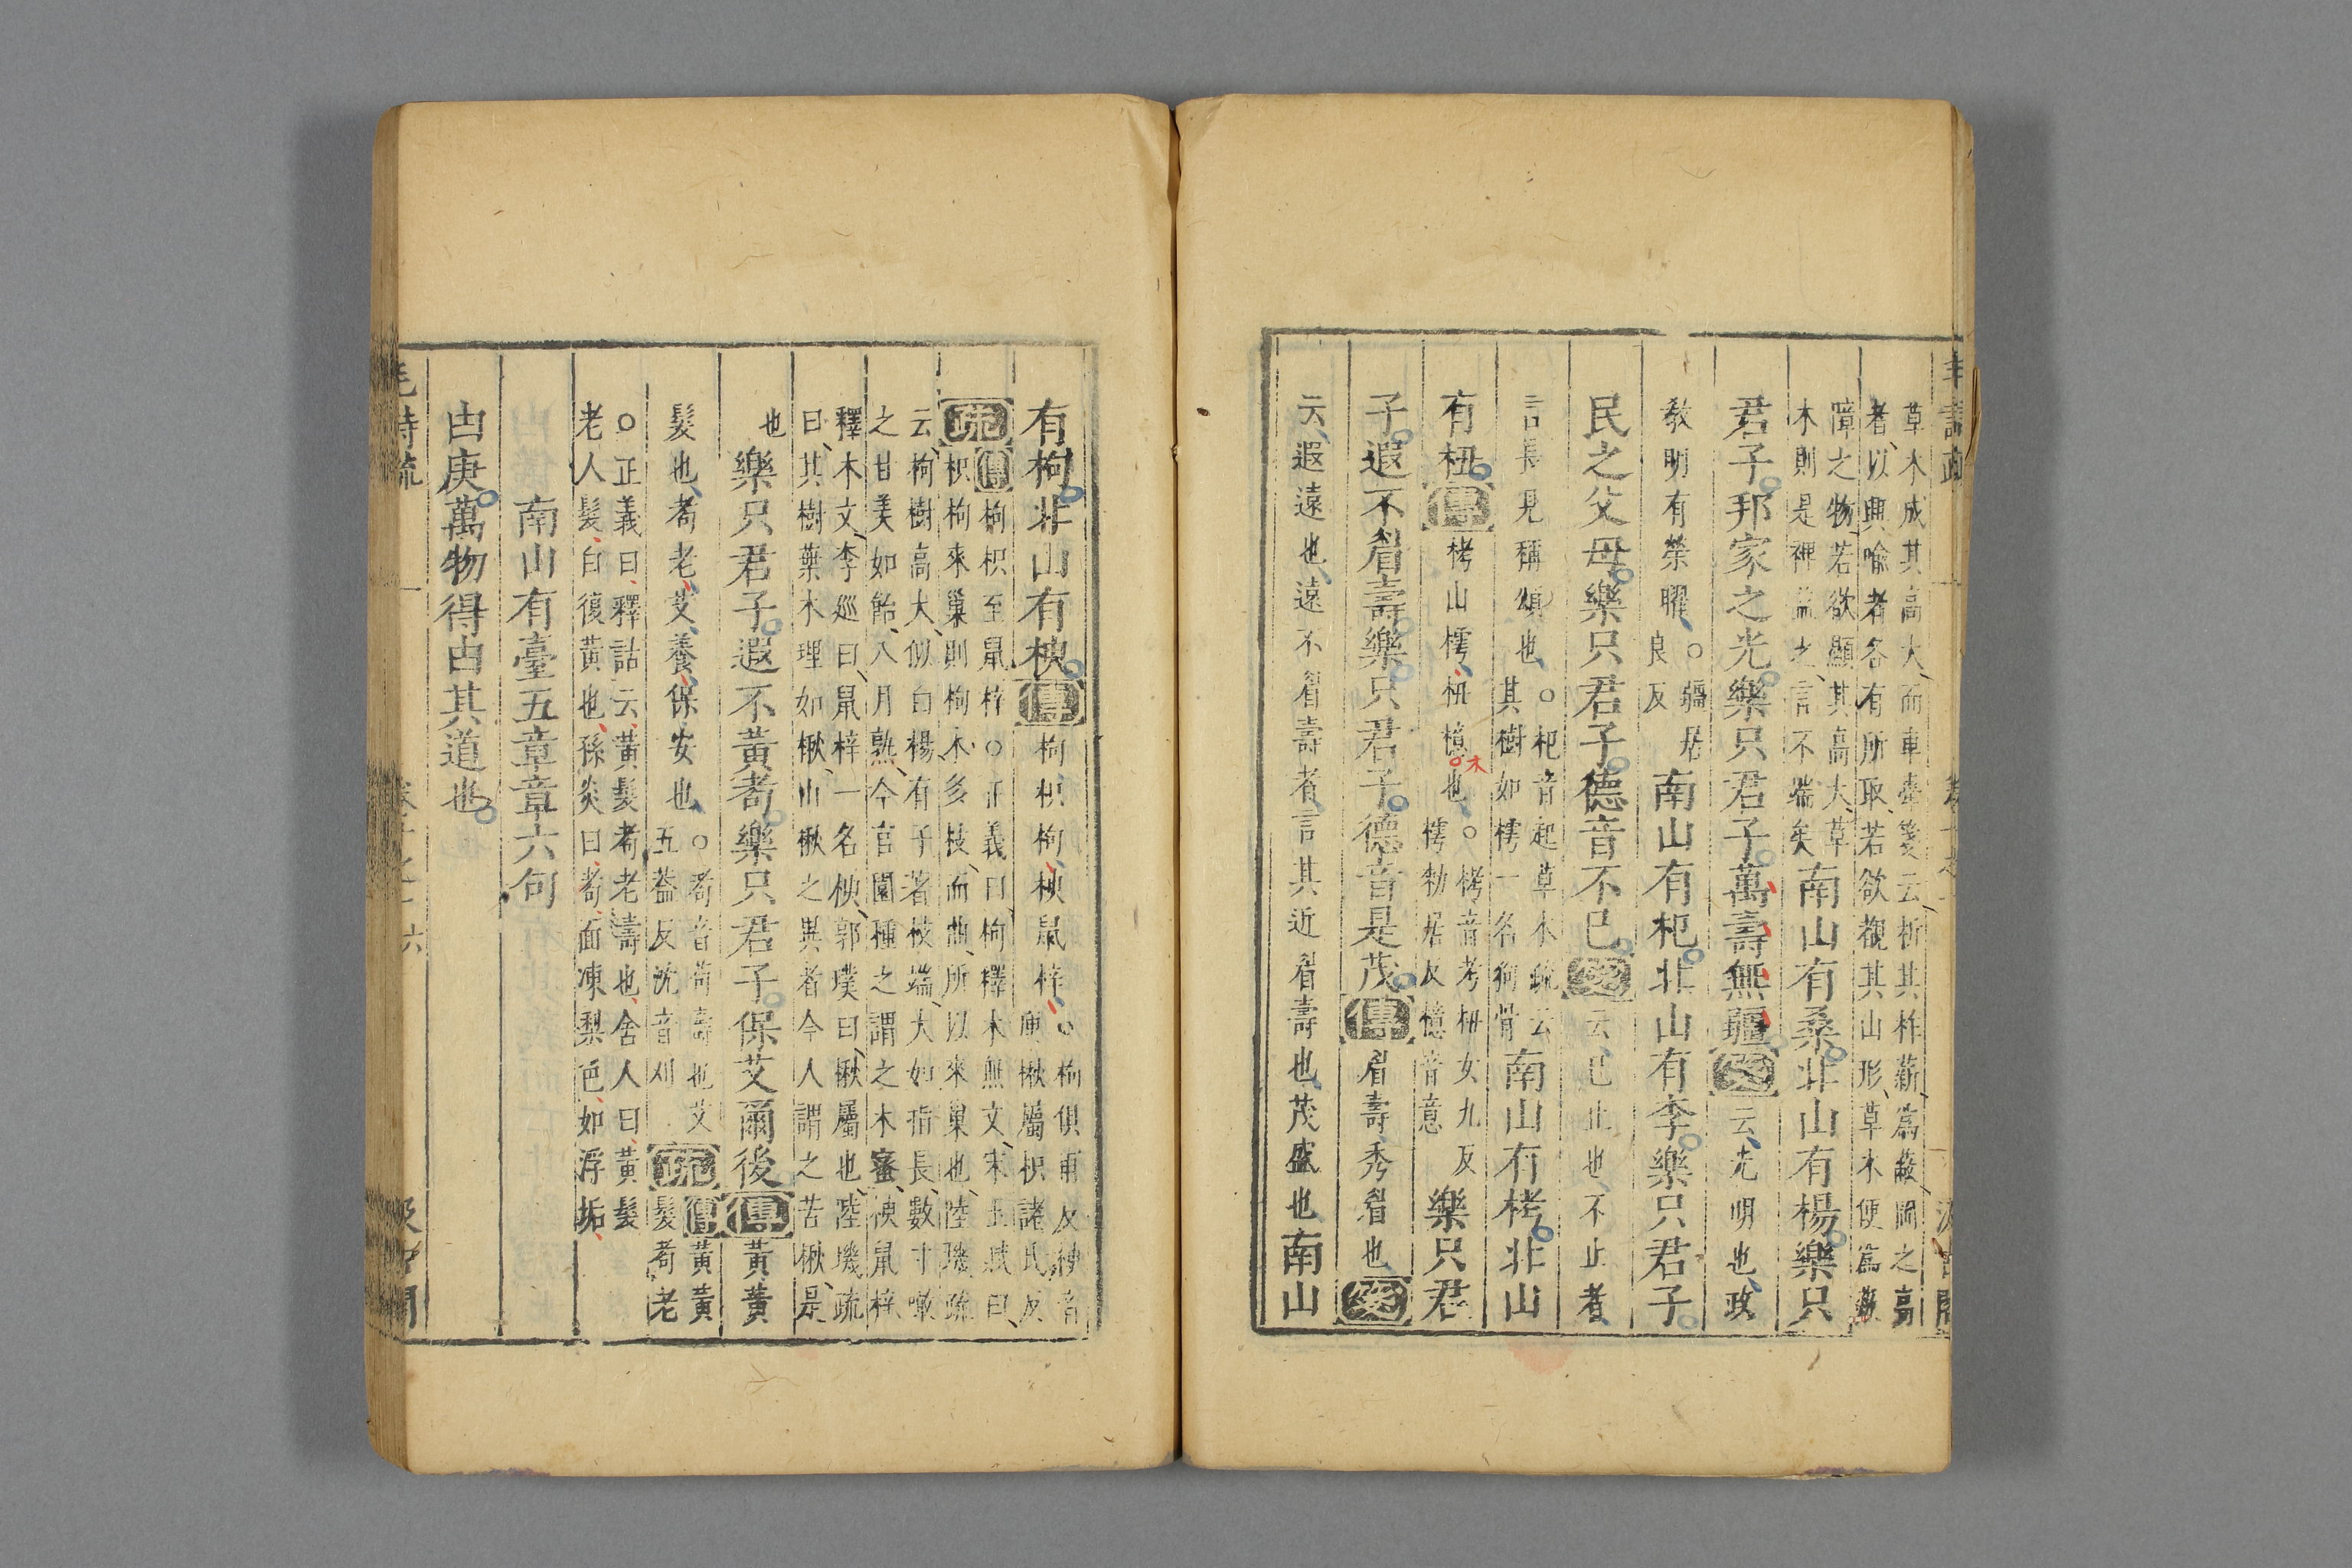 草木成其高大而車舝箋云析其柞薪爲蔽岡之高
者以興喻者各有所取若欲觀其山形草木便爲蔽
障之物若欲顯其高大草
木則是裨益之言不端矣
南山有桑北山有楊樂只
君子邦家之光樂只君子萬壽無疆箋云光明也政
教明有榮曜○疆居
良反
南山有杞北山有李樂只君子
民之父母樂只君子德音不已箋云已止也不止者
言長見稱頌也○杞音起草木疏云
其樹如樗一名狗骨
南山有栲北山
有杻傳栲山樗杻檍也○栲音考杻女九反
樗勑居反檍音意
木
樂只君
子遐不眉壽樂只君子德音是茂傳眉壽秀眉也箋
云遐遠也遠不眉壽者言其近眉壽也茂盛也南山
有枸北山有楰傳枸枳枸楰鼠梓○枸俱甫反楰音
庾楸屬枳諸氏反
疏傳枸枳至鼠梓○正義曰枸釋木無文宋玉賦曰
枳枸來巢則枸木多枝而曲所以來巢也陸璣疏
云枸樹高大似白楊有子著枝端大如指長數寸噉
之甘美如飴八月熟今官園種之謂之木蜜楰鼠梓
釋木文李巡曰鼠梓一名楰郭璞曰楸屬也陸璣疏
曰其樹葉木理如楸山楸之異者今人謂之苦楸是
也
樂只君子遐不黃耇樂只君子保艾爾後傳黃黃
髮也耇老艾養保安也○耇音苟壽也艾
五葢反沈音刈
疏傳黃黃
髮耇老
○正義曰釋詁云黃髮耇老壽也舍人曰黃髮
老人髮白復黃也孫炎曰耇面凍梨色如浮垢
南山有臺五章章六句
由庚萬物得由其道也
毛詩疏